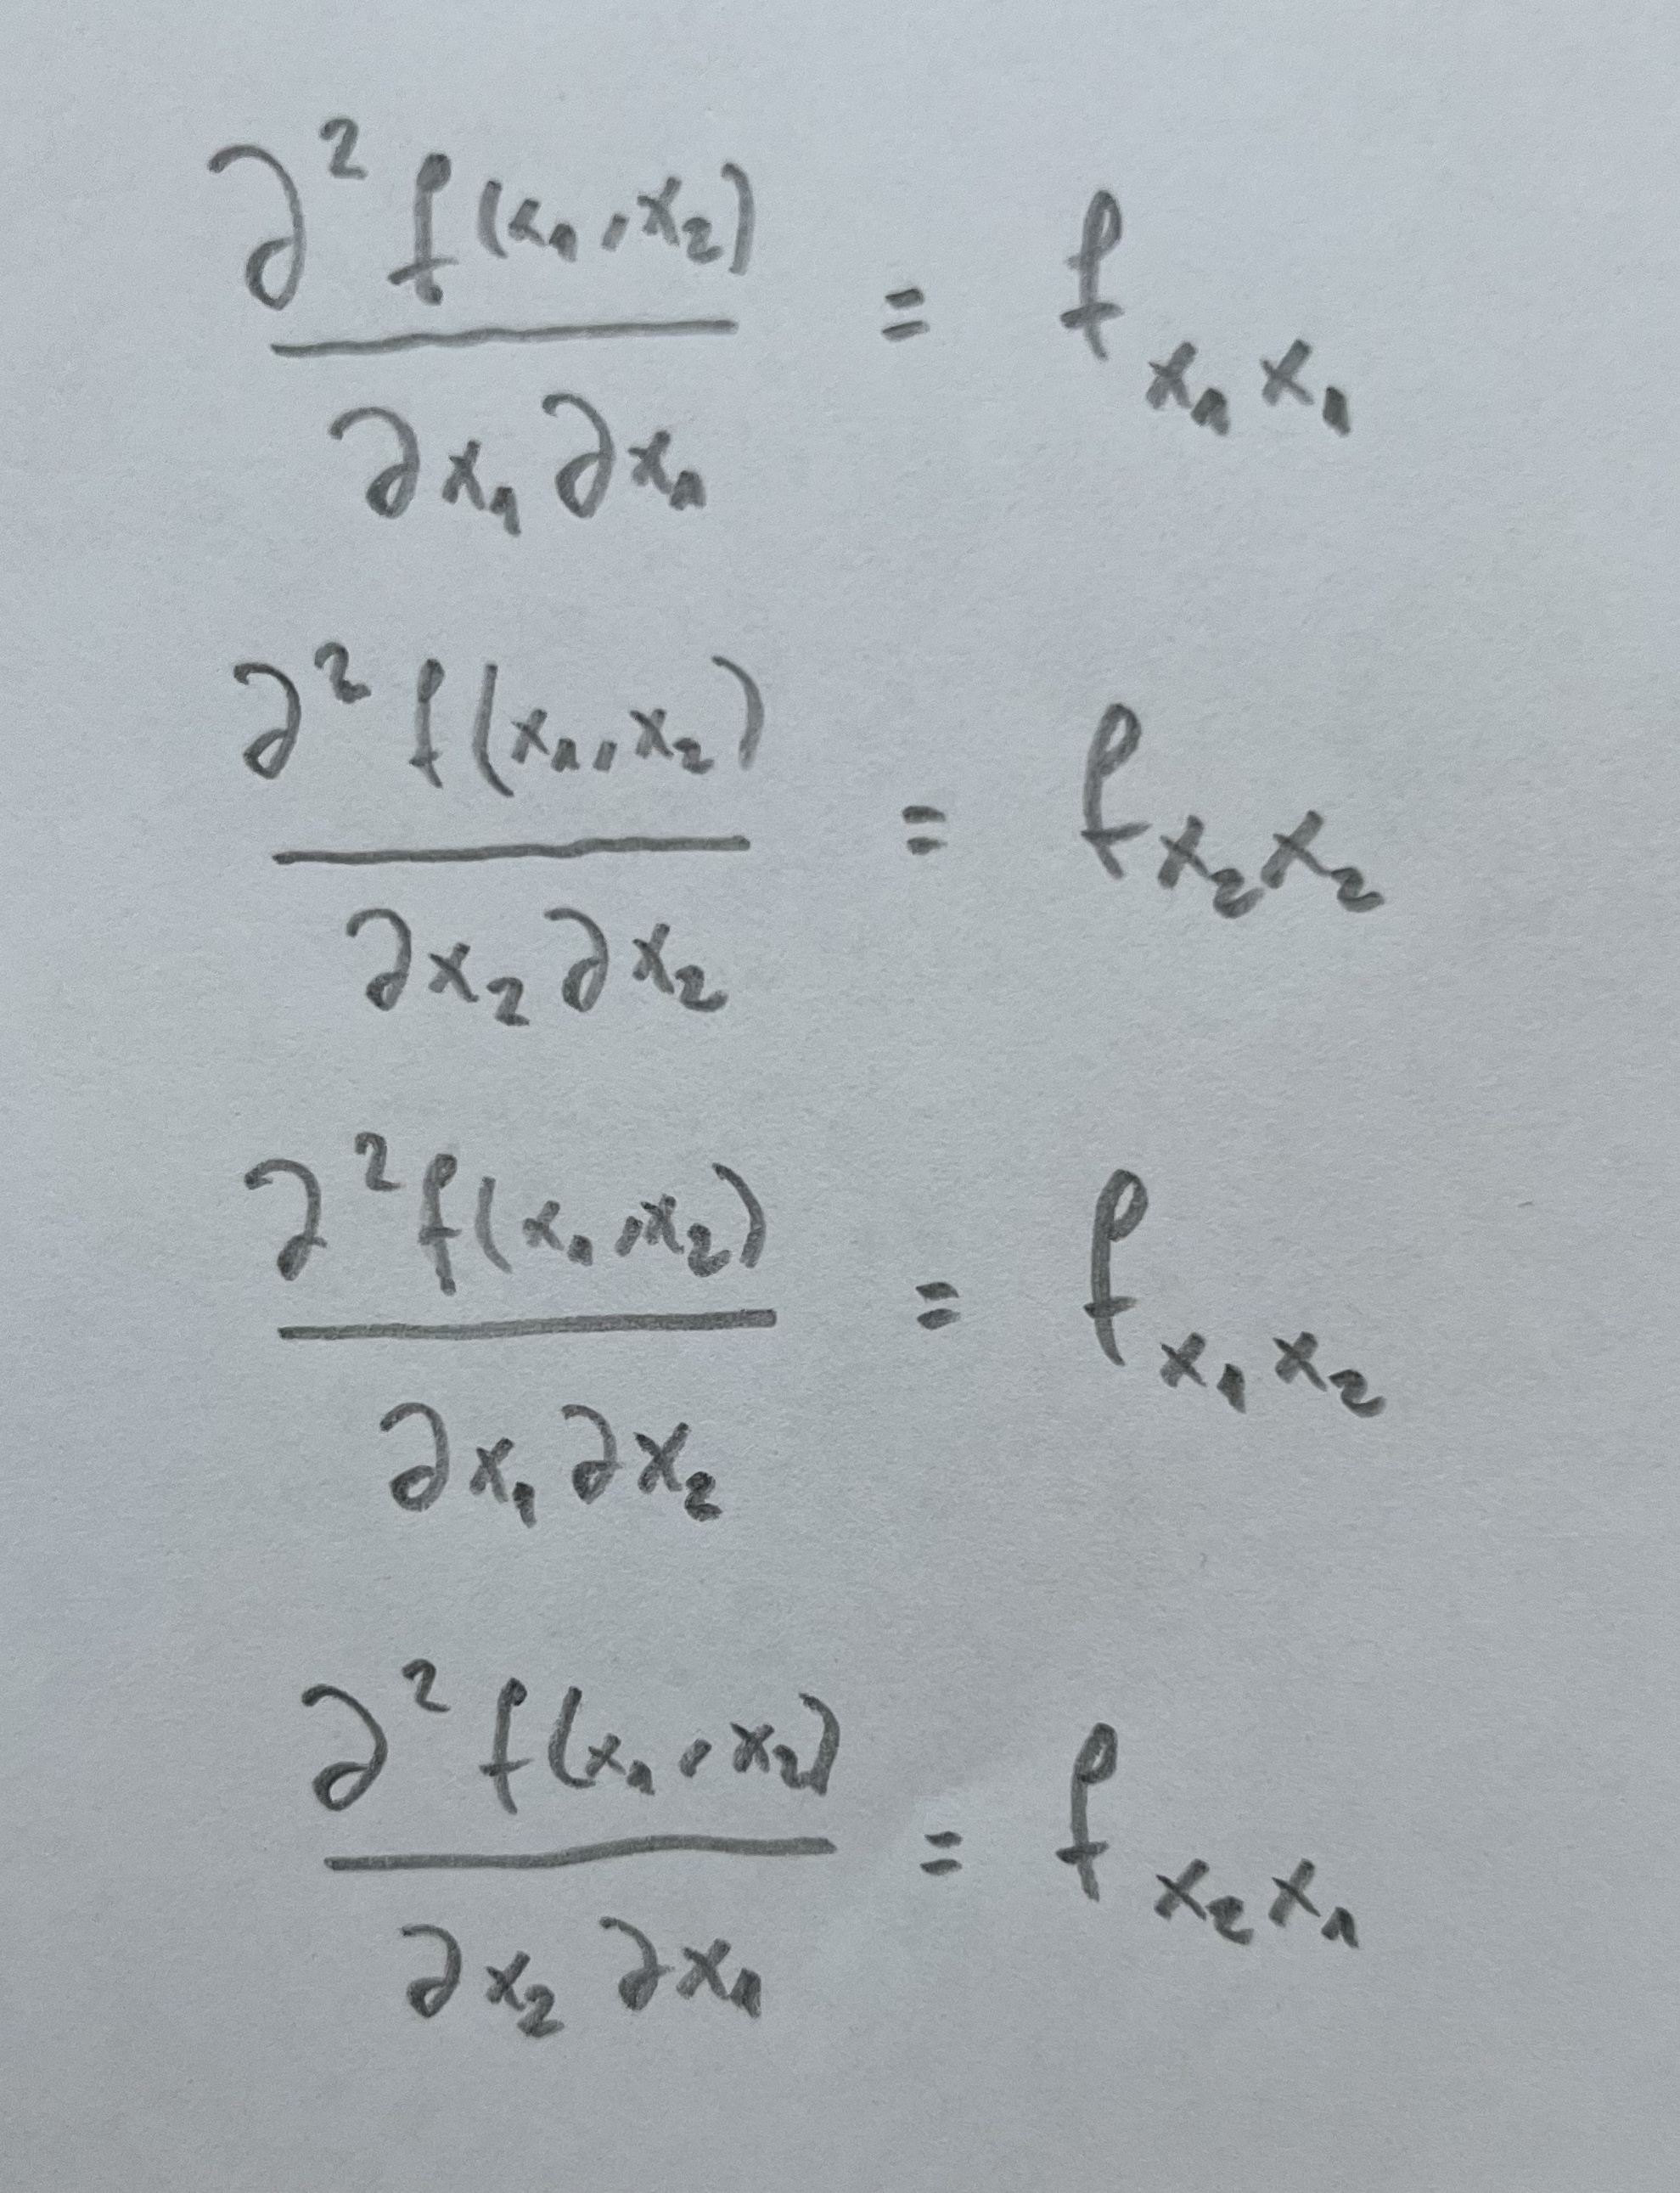 ∂² f(x₁, x₂) / ∂x₁ ∂x₁ = f_{x₁ x₁}
∂² f(x₁, x₂) / ∂x₂ ∂x₂ = f_{x₂ x₂}
∂² f(x₁, x₂) / ∂x₁ ∂x₂ = f_{x₁ x₂}
∂² f(x₁, x₂) / ∂x₂ ∂x₁ = f_{x₂ x₁}